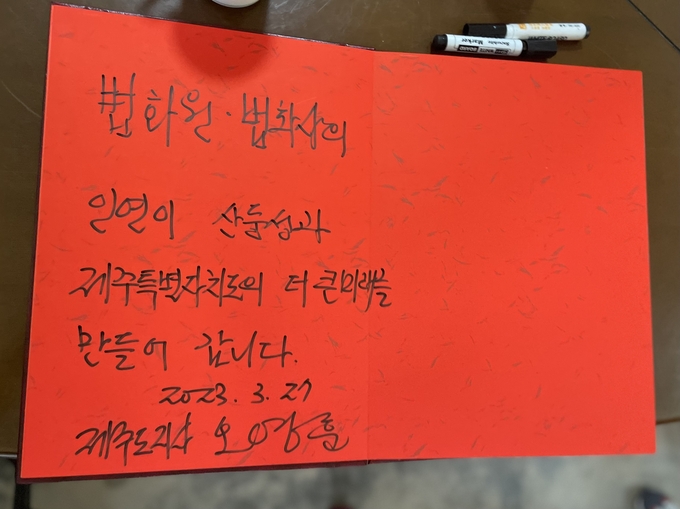 법화원·법화사의
인연이 산둥성과
제주특별자치도의 더 큰 미래를
만들어 갑니다.
2023. 3. 27
제주도지사 오영훈
Marker